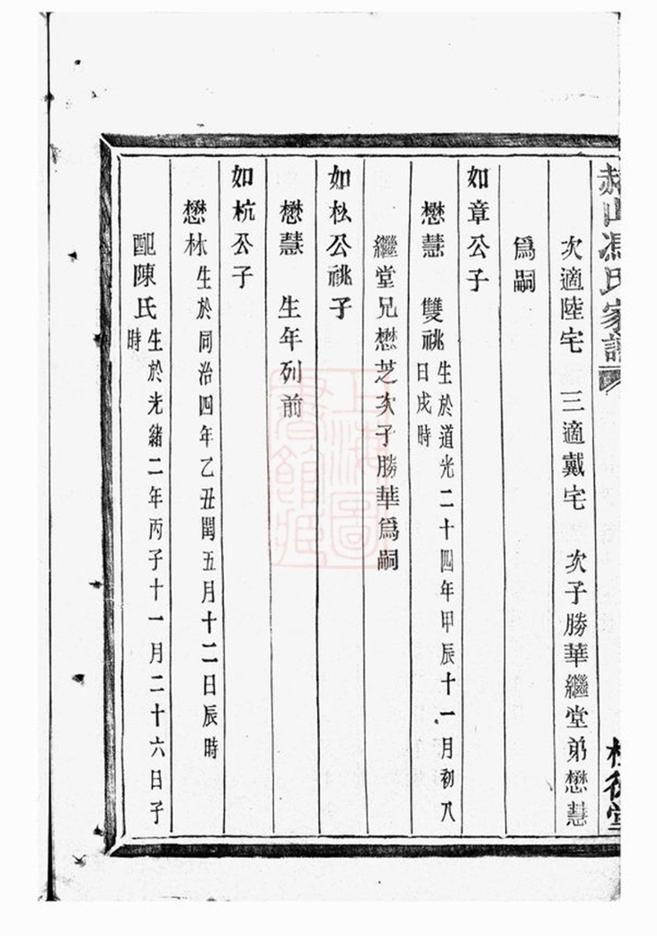 山馮氏家譜
次適陸宅 三適戴宅 次子勝華繼堂弟懋慧
爲嗣
如章公子
懋慧 雙祧生於道光二十四年甲辰十一月初八
日戌時
繼堂兄懋芝次子勝華爲嗣
如松公祧子
懋慧 生年列前
如杭公子
懋林生於同治四年乙丑閏五月十二日辰時
配陳氏生於光緒二年丙子十一月二十六日子
時
上海圖
書館藏